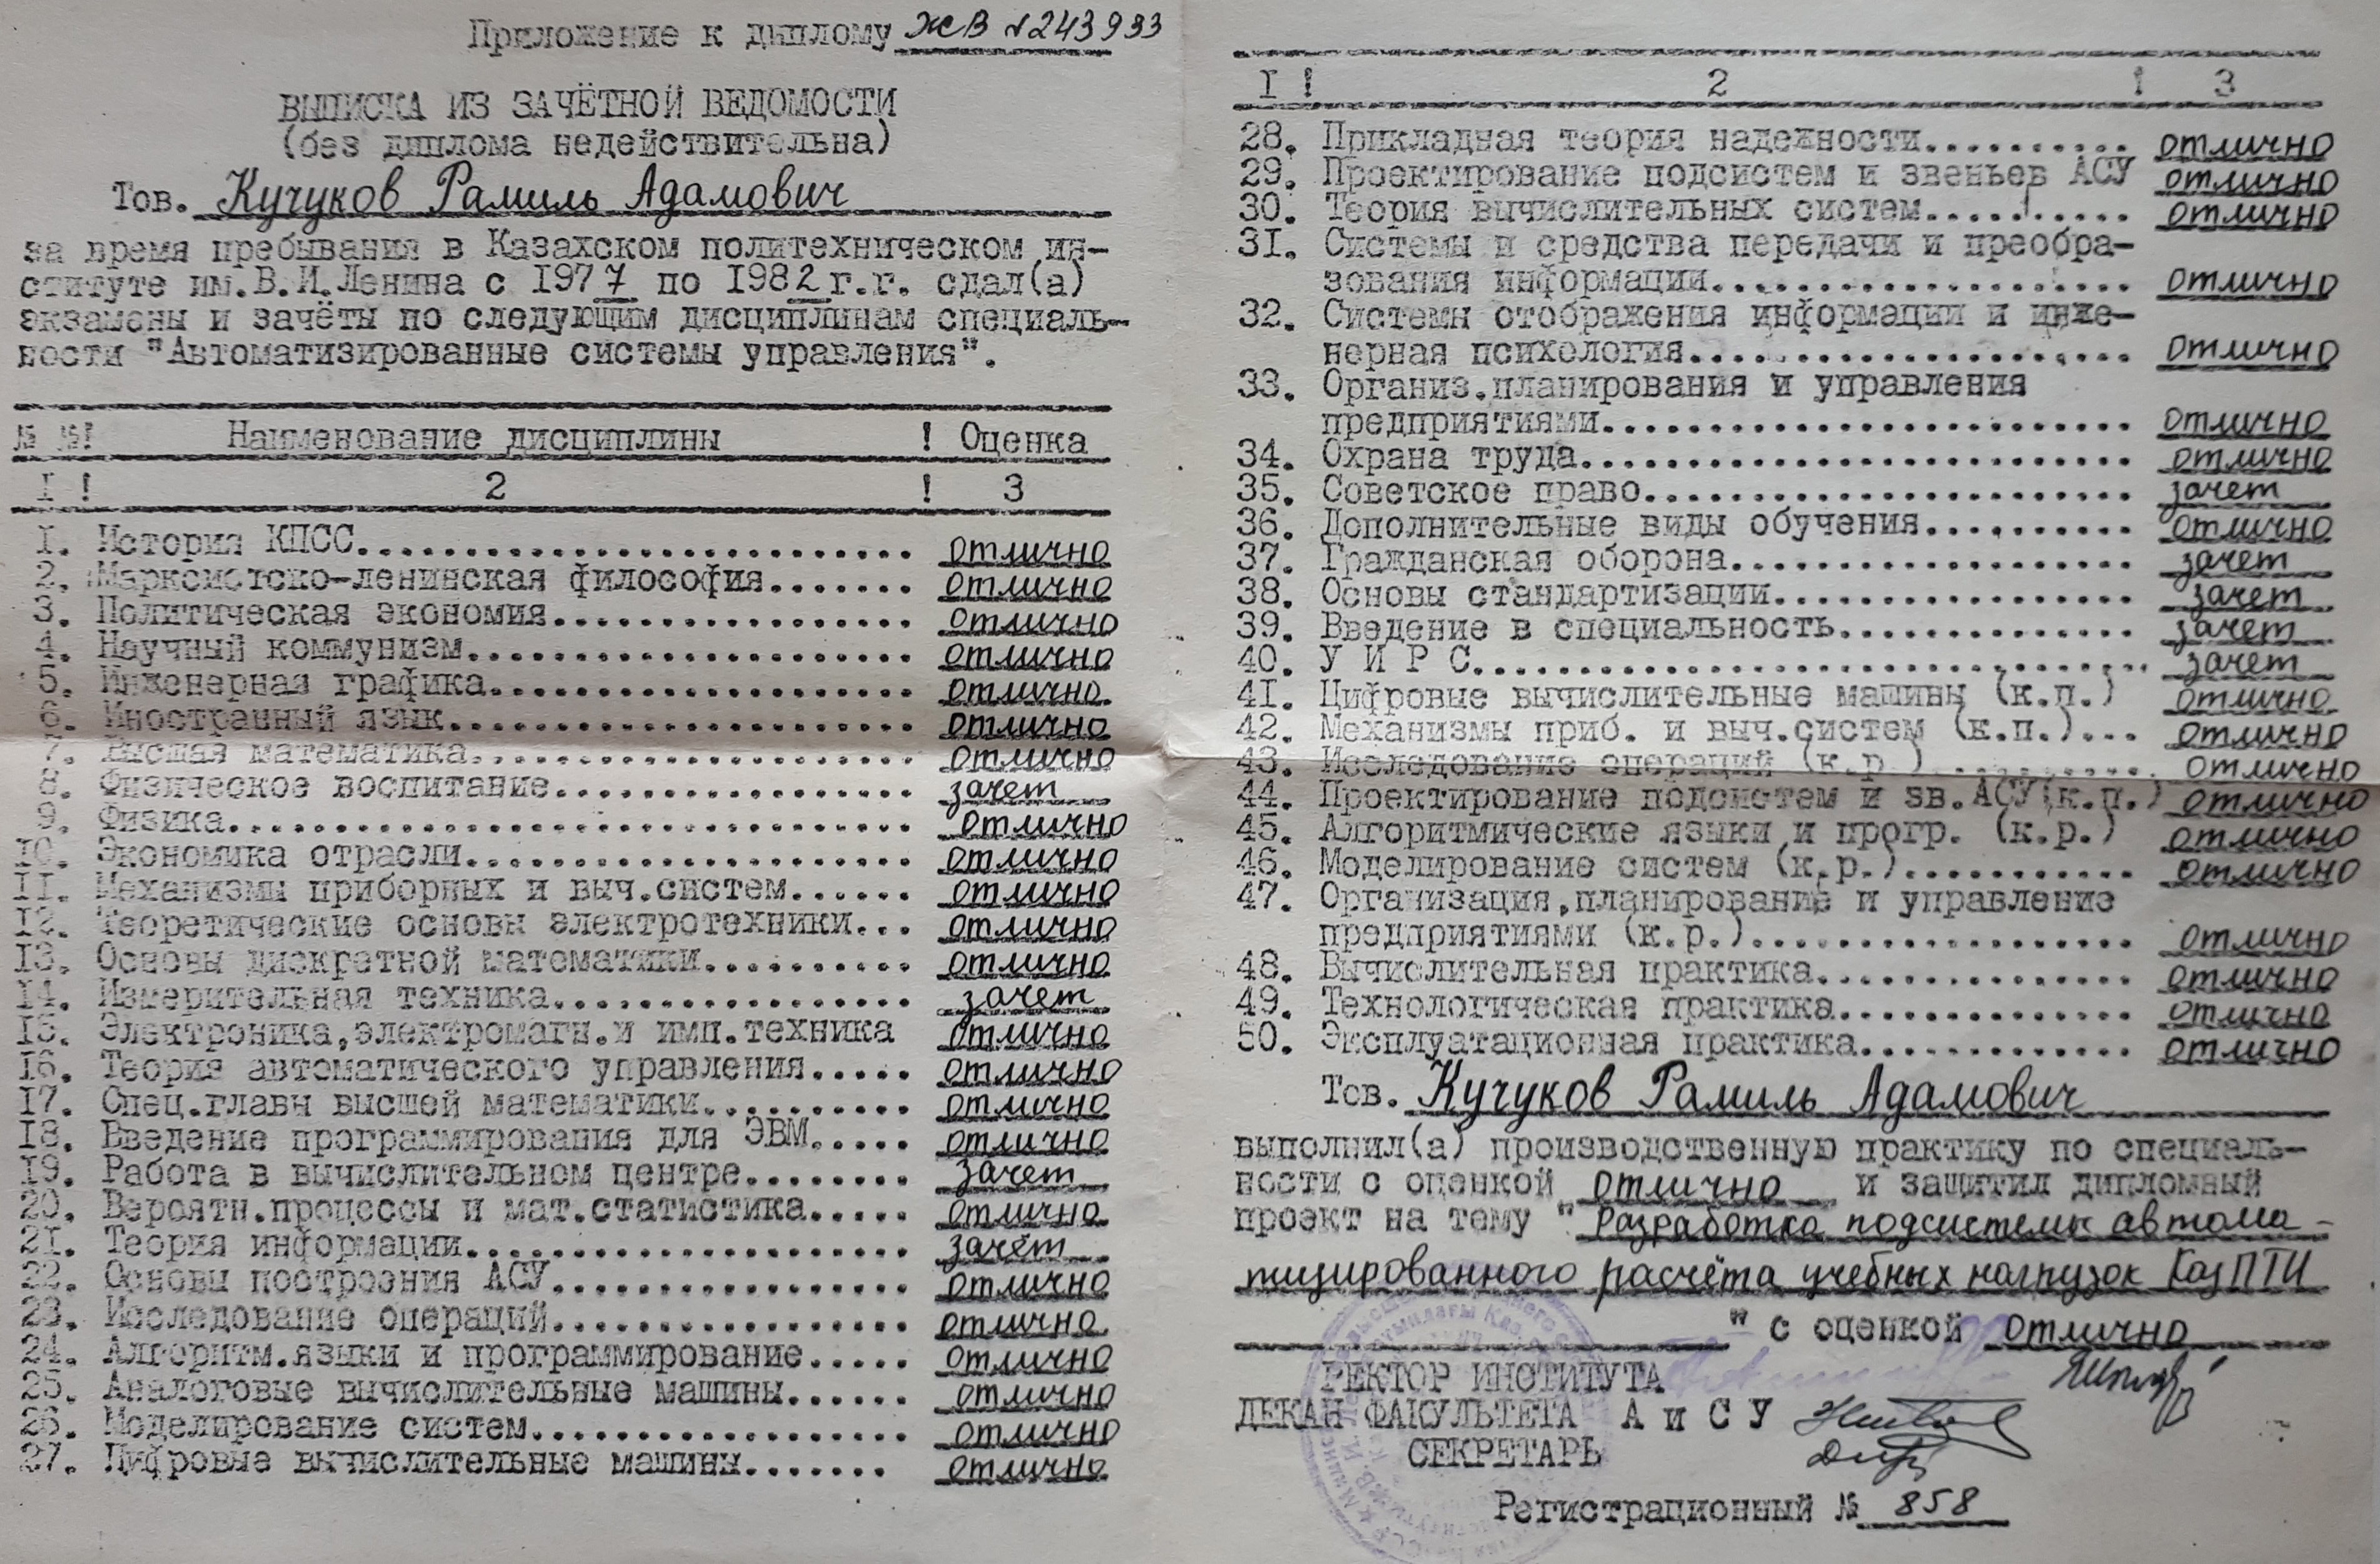 Приложение к диплому ЖВ №243933
ВЫПИСКА ИЗ ЗАЧЁТНОЙ ВЕДОМОСТИ
(без диплома недействительна)
Тов. Кучуков Рамиль Адамович
за время пребывания в Казахском политехническом ин-
ституте им.В.И.Ленина с 1977 по 1982 г.г. сдал(а)
экзамены и зачёты по следующим дисциплинам специаль-
ности "Автоматизированные системы управления".
№ №! Наименование дисциплины ! Оценка
I ! 2 ! 3
I. История КПСС........................... отлично
2. Марксистско-ленинская философия....... отлично
3. Политическая экономия................. отлично
4. Научный коммунизм..................... отлично
5. Инженерная графика.................... отлично
6. Иностранный язык...................... отлично
7. Высшая математика..................... отлично
8. Физическое воспитание................. зачет
9. Физика................................ отлично
10. Экономика отрасли..................... отлично
II. Механизмы приборных и выч.систем...... отлично
12. Теоретические основы электротехники... отлично
13. Основы дискретной математики.......... отлично
14. Измерительная техника................. зачет
15. Электроника,электромагн.и имп.техника отлично
16. Теория автоматического управления..... отлично
17. Спец.главы высшей математики.......... отлично
18. Введение программирования для ЭВМ..... отлично
19. Работа в вычислительном центре........ зачет
20. Вероятн.процессы и мат.статистика..... отлично
21. Теория информации..................... зачёт
22. Основы построения АСУ................. отлично
23. Исследование операций................. отлично
24. Алгоритм.языки и программирование..... отлично
25. Аналоговые вычислительные машины...... отлично
26. Моделирование систем.................. отлично
27. Цифровые вычислительные машины....... отлично
I ! 2 ! 3
28. Прикладная теория надежности.......... отлично
29. Проектирование подсистем и звеньев АСУ отлично
30. Теория вычислительных систем.......... отлично
31. Системы и средства передачи и преобра-
зования информации.................... отлично
32. Системы отображения информации и инже-
нерная психология..................... отлично
33. Организ.планирования и управления
предприятиями......................... отлично
34. Охрана труда.......................... отлично
35. Советское право....................... зачет
36. Дополнительные виды обучения.......... отлично
37. Гражданская оборона................... зачет
38. Основы стандартизации................. зачет
39. Введение в специальность.............. зачет
40. У И Р С............................... зачет
41. Цифровые вычислительные машины (к.п.) отлично
42. Механизмы приб. и выч.систем (к.п.)... отлично
43. Исследование операций (к.р.).......... отлично
44. Проектирование подсистем и зв.АСУ(к.п.) отлично
45. Алгоритмические языки и прогр. (к.р.) отлично
46. Моделирование систем (к.р.)........... отлично
47. Организация,планирование и управление
предприятиями (к.р.).................. отлично
48. Вычислительная практика............... отлично
49. Технологическая практика.............. отлично
50. Эксплуатационная практика............. отлично
Тов. Кучуков Рамиль Адамович
выполнил(а) производственную практику по специаль-
ности с оценкой отлично и защитил дипломный
проект на тему "Разработка подсистемы автома-
тизированного расчёта учебных нагрузок КазПТИ
" с оценкой отлично
РЕКТОР ИНСТИТУТА
ДЕКАН ФАКУЛЬТЕТА А и С У
СЕКРЕТАРЬ
Регистрационный № 858